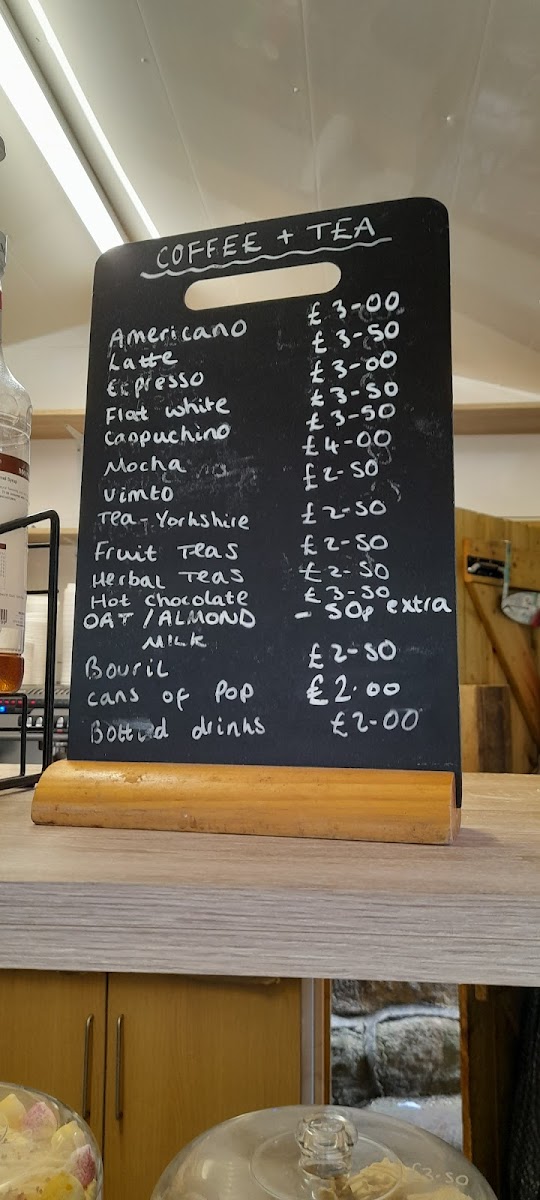 COFFEE + TEA
Americano £3-00
Latte £3-50
Espresso £3-00
Flat white £3-50
Cappuchino £3-50
Mocha £4-00
Vimto £2-50
Tea-Yorkshire £2-50
Fruit Teas £2-50
Herbal Teas £2-50
Hot chocolate £3-50
OAT/ALMOND - 50p extra
MILK
Bouril £2-50
cans of Pop £2.00
Bottled drinks £2-00
£3-50